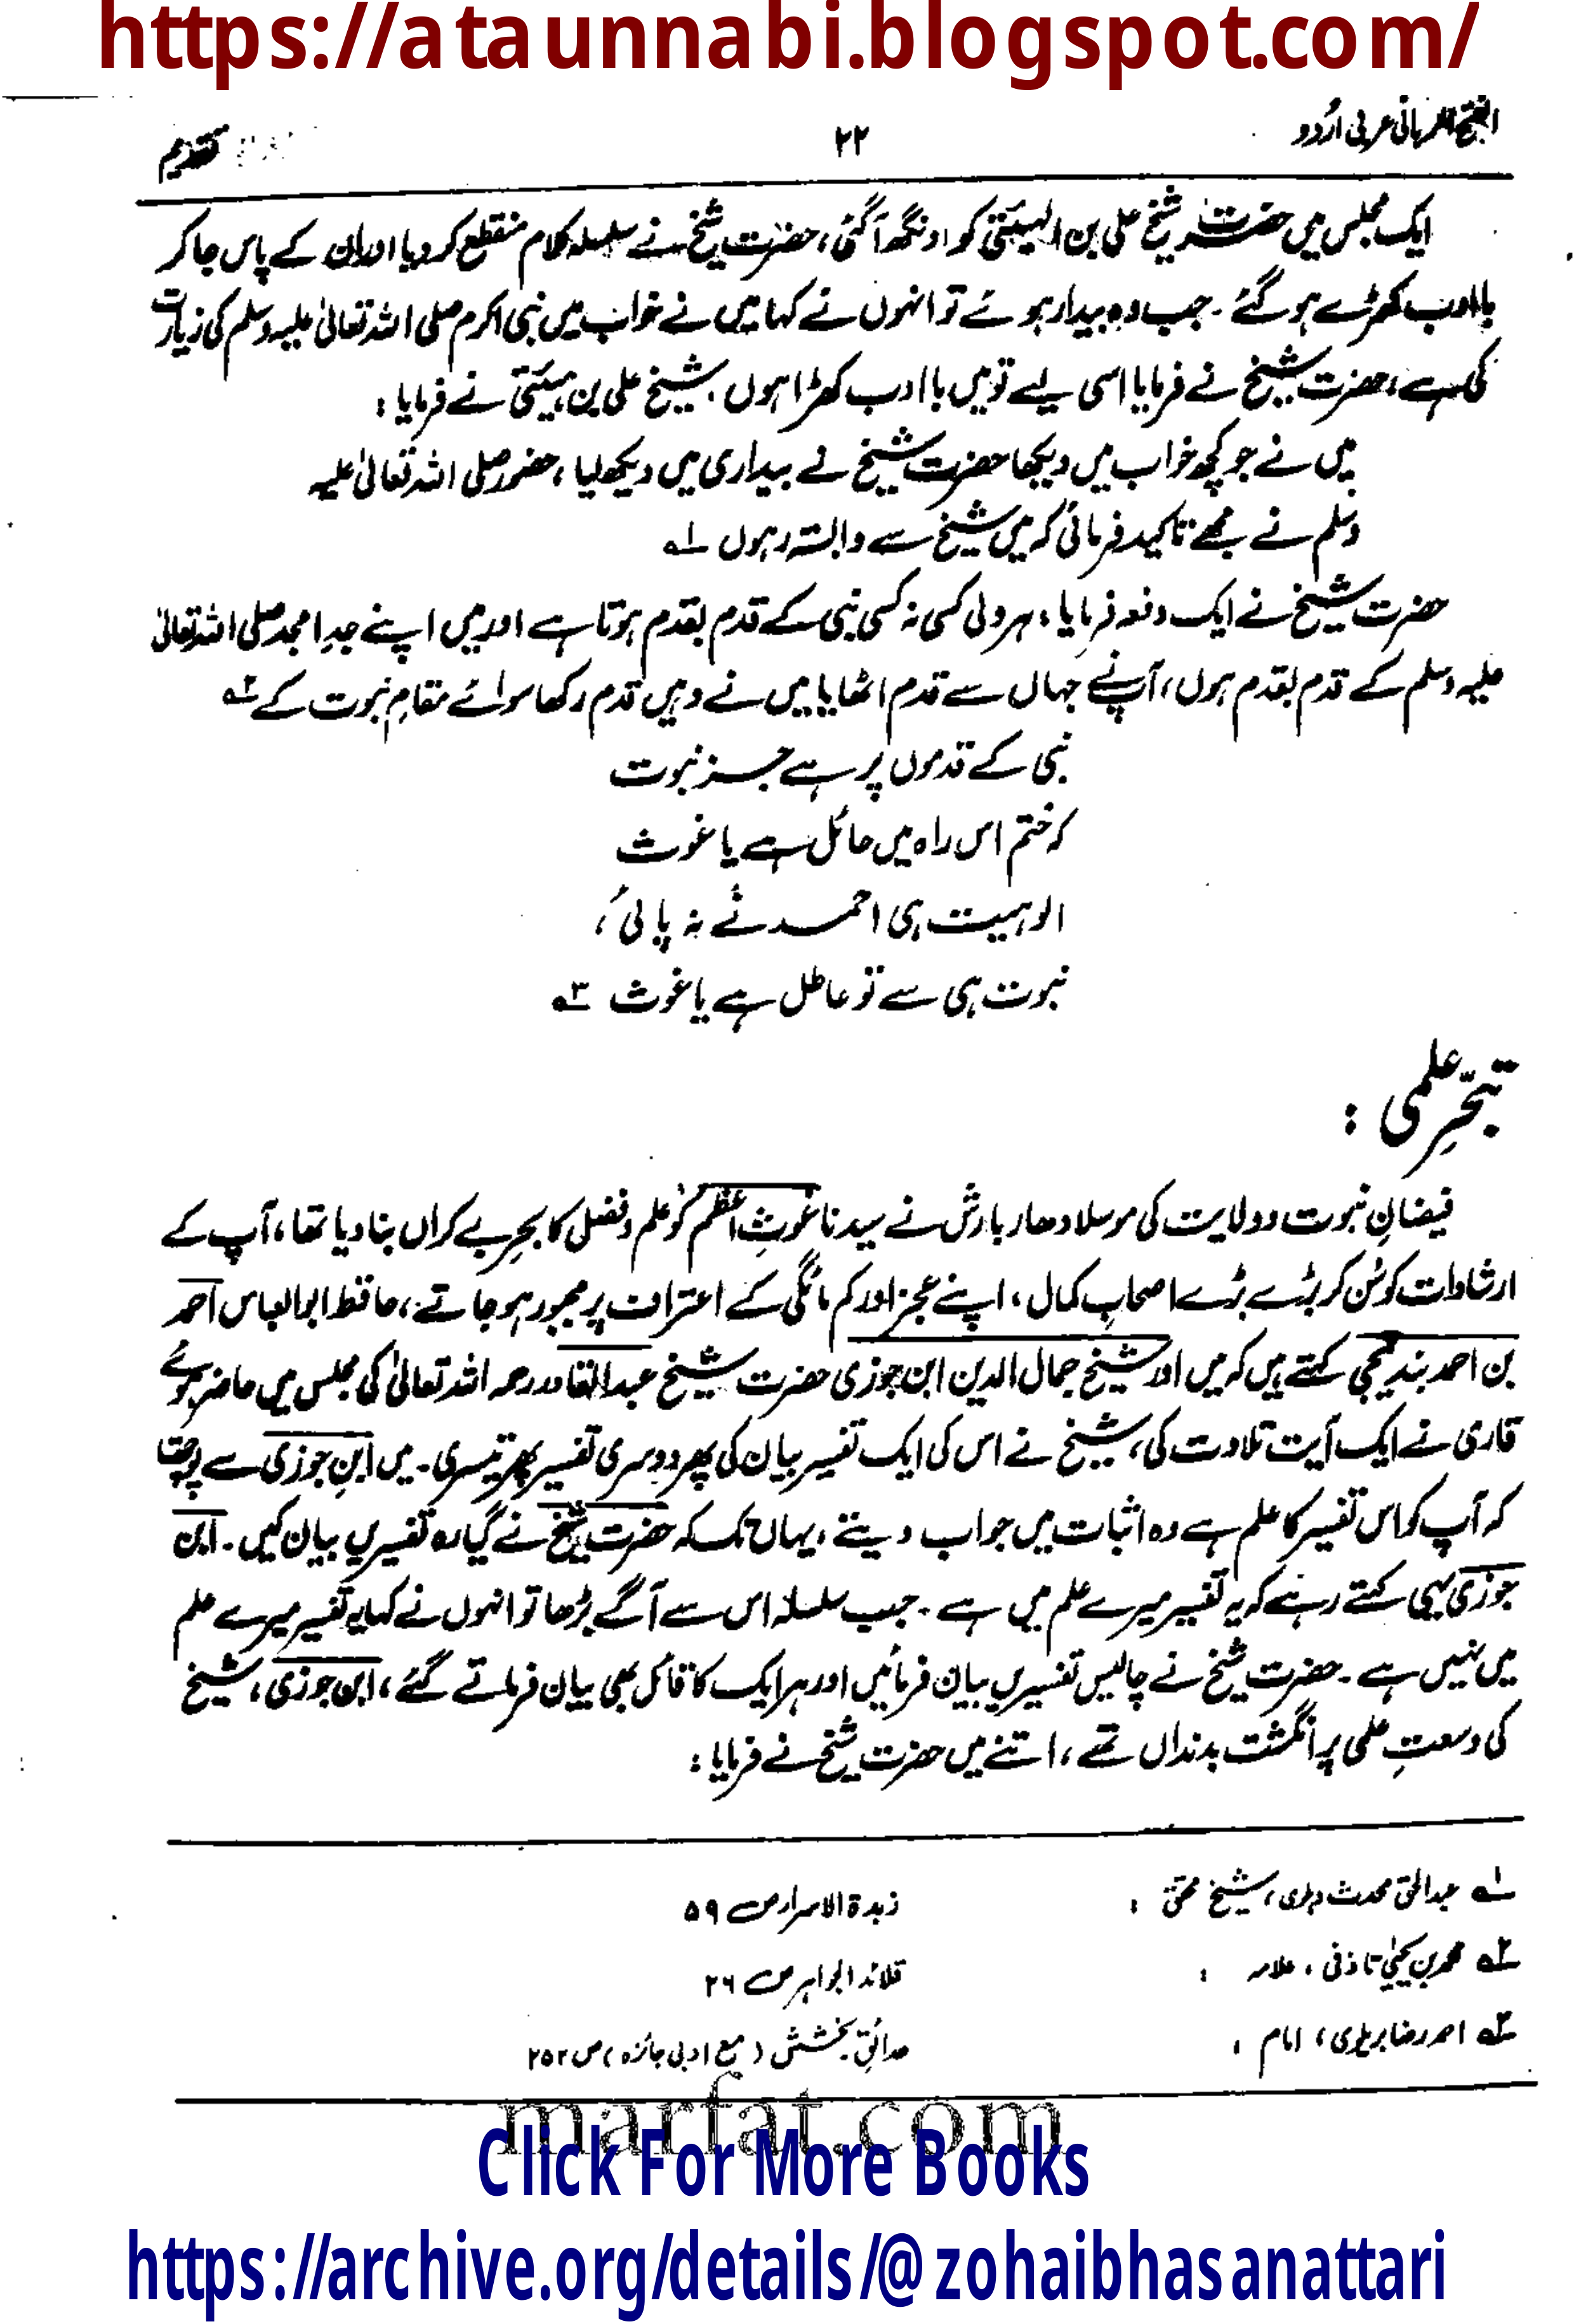 https://ataunnabi.blogspot.com/
الفتح الربانی عربی اردو
۲۲
تقدیم
ایک مجلس میں حضرت شیخ علی بن الہیئتی کو اونگھ آگئی، حضرت شیخ نے سلسلہ کلام منقطع کر دیا اور ان کے پاس جا کر
باادب کھڑے ہو گئے ۔ جب وہ بیدار ہوئے تو انہوں نے کہا میں نے خواب میں نبی اکرم صلی اللہ تعالیٰ علیہ وسلم کی زیارت
کی ہے، حضرت شیخ نے فرمایا اسی لیے تو میں با ادب کھڑا ہوں ۔ شیخ علی بن ہیئتی نے فرمایا :
میں نے جو کچھ خواب میں دیکھا حضرت شیخ نے بیداری میں دیکھ لیا ، حضور صلی اللہ تعالیٰ علیہ
وسلم نے مجھے تاکید فرمائی کہ میں شیخ سے وابستہ رہوں ۱ـہ
حضرت شیخ نے ایک دفعہ فرمایا : ہر ولی کسی نہ کسی نبی کے قدم بقدم ہوتا ہے اور میں اپنے جدِ امجد صلی اللہ تعالیٰ
علیہ وسلم کے قدم بقدم ہوں، آپ نے جہاں سے قدم اٹھایا میں نے وہیں قدم رکھا سوائے مقامِ نبوت کے ۲ـہ
نبی کے قدموں پر ہے جز نبوت
کہ ختم اس راہ میں حائل ہے یا غوث
الوہیت ہی احمد نے نہ پائی ،
نبوت ہی سے تو عاطل ہے یا غوث ۳ـہ
تبحّرِ علمی :
فیضانِ نبوت و ولایت کی موسلا دھار بارش نے سیدنا غوثِ اعظم کو علم و فضل کا بحرِ بے کراں بنا دیا تھا ، آپ کے
ارشادات کو سُن کر بڑے بڑے اصحابِ کمال ، اپنے عجز اور کم مائگی کے اعتراف پر مجبور ہو جاتے ، حافظ ابو العباس احمد
بن احمد بندیجی کہتے ہیں کہ میں اور شیخ جمال الدین ابن جوزی حضرت شیخ عبدالقادر رحمہ اللہ تعالیٰ کی مجلس میں حاضر ہوئے
قاری نے ایک آیت تلاوت کی ، شیخ نے اس کی ایک تفسیر بیان کی پھر دوسری تفسیر پھر تیسری ۔ میں ابنِ جوزی سے پوچھتا
کہ آپ کو اس تفسیر کا علم ہے وہ اثبات میں جواب دیتے ، یہاں تک کہ حضرت شیخ نے گیارہ تفسیریں بیان کیں ۔ ابن
جوزی یہی کہتے رہے کہ یہ تفسیر میرے علم میں ہے ۔ جب سلسلہ اس سے آگے بڑھا تو انہوں نے کہا یہ تفسیر میرے علم
میں نہیں ہے ۔ حضرت شیخ نے چالیس تفسیریں بیان فرمائیں اور ہر ایک کا قائل بھی بیان فرماتے گئے ، ابن جوزی ، شیخ
کی وسعتِ علمی پر انگشت بدنداں تھے ، اتنے میں حضرت شیخ نے فرمایا :
۱ـہ عبدالحق محدث دہلوی ، شیخ محقق : زبدۃ الاسرار ص ۵۹
۲ـہ محمد بن یحییٰ تاذفی ، علامہ : قلائد الجواہر ص ۲۶
۳ـہ احمد رضا بریلوی ، امام : حدائقِ بخشش (مع ادبی جائزہ) ص ۲۵۲
marfat.com
Click For More Books
https://archive.org/details/@zohaibhasanattari